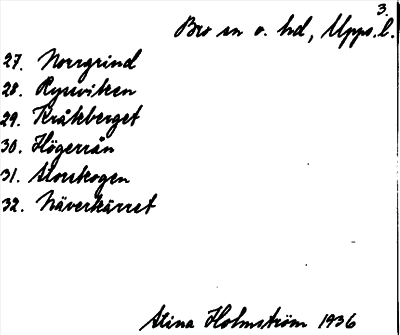 3.
Bro sn o. hd, Upps. l.
27. Norrgrind
28. Ryssviken
29. Kråkberget
30. Högerrån
31. Storskogen
32. Näverkärret
Stina Holmström 1936